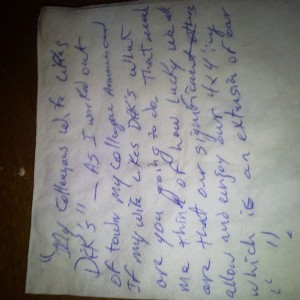 "My Colleagues wife likes
DAK's" — As I worked out
of town my colleague announced
If my wife likes DAK's what
are you going to do that made
me think of how lucky we all
are that our significant others
allow and enjoy our 4x4"ing
which is an extension of our